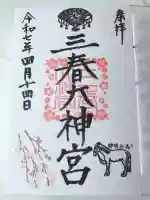 奉拝
三春大神宮
令和七年四月十四日